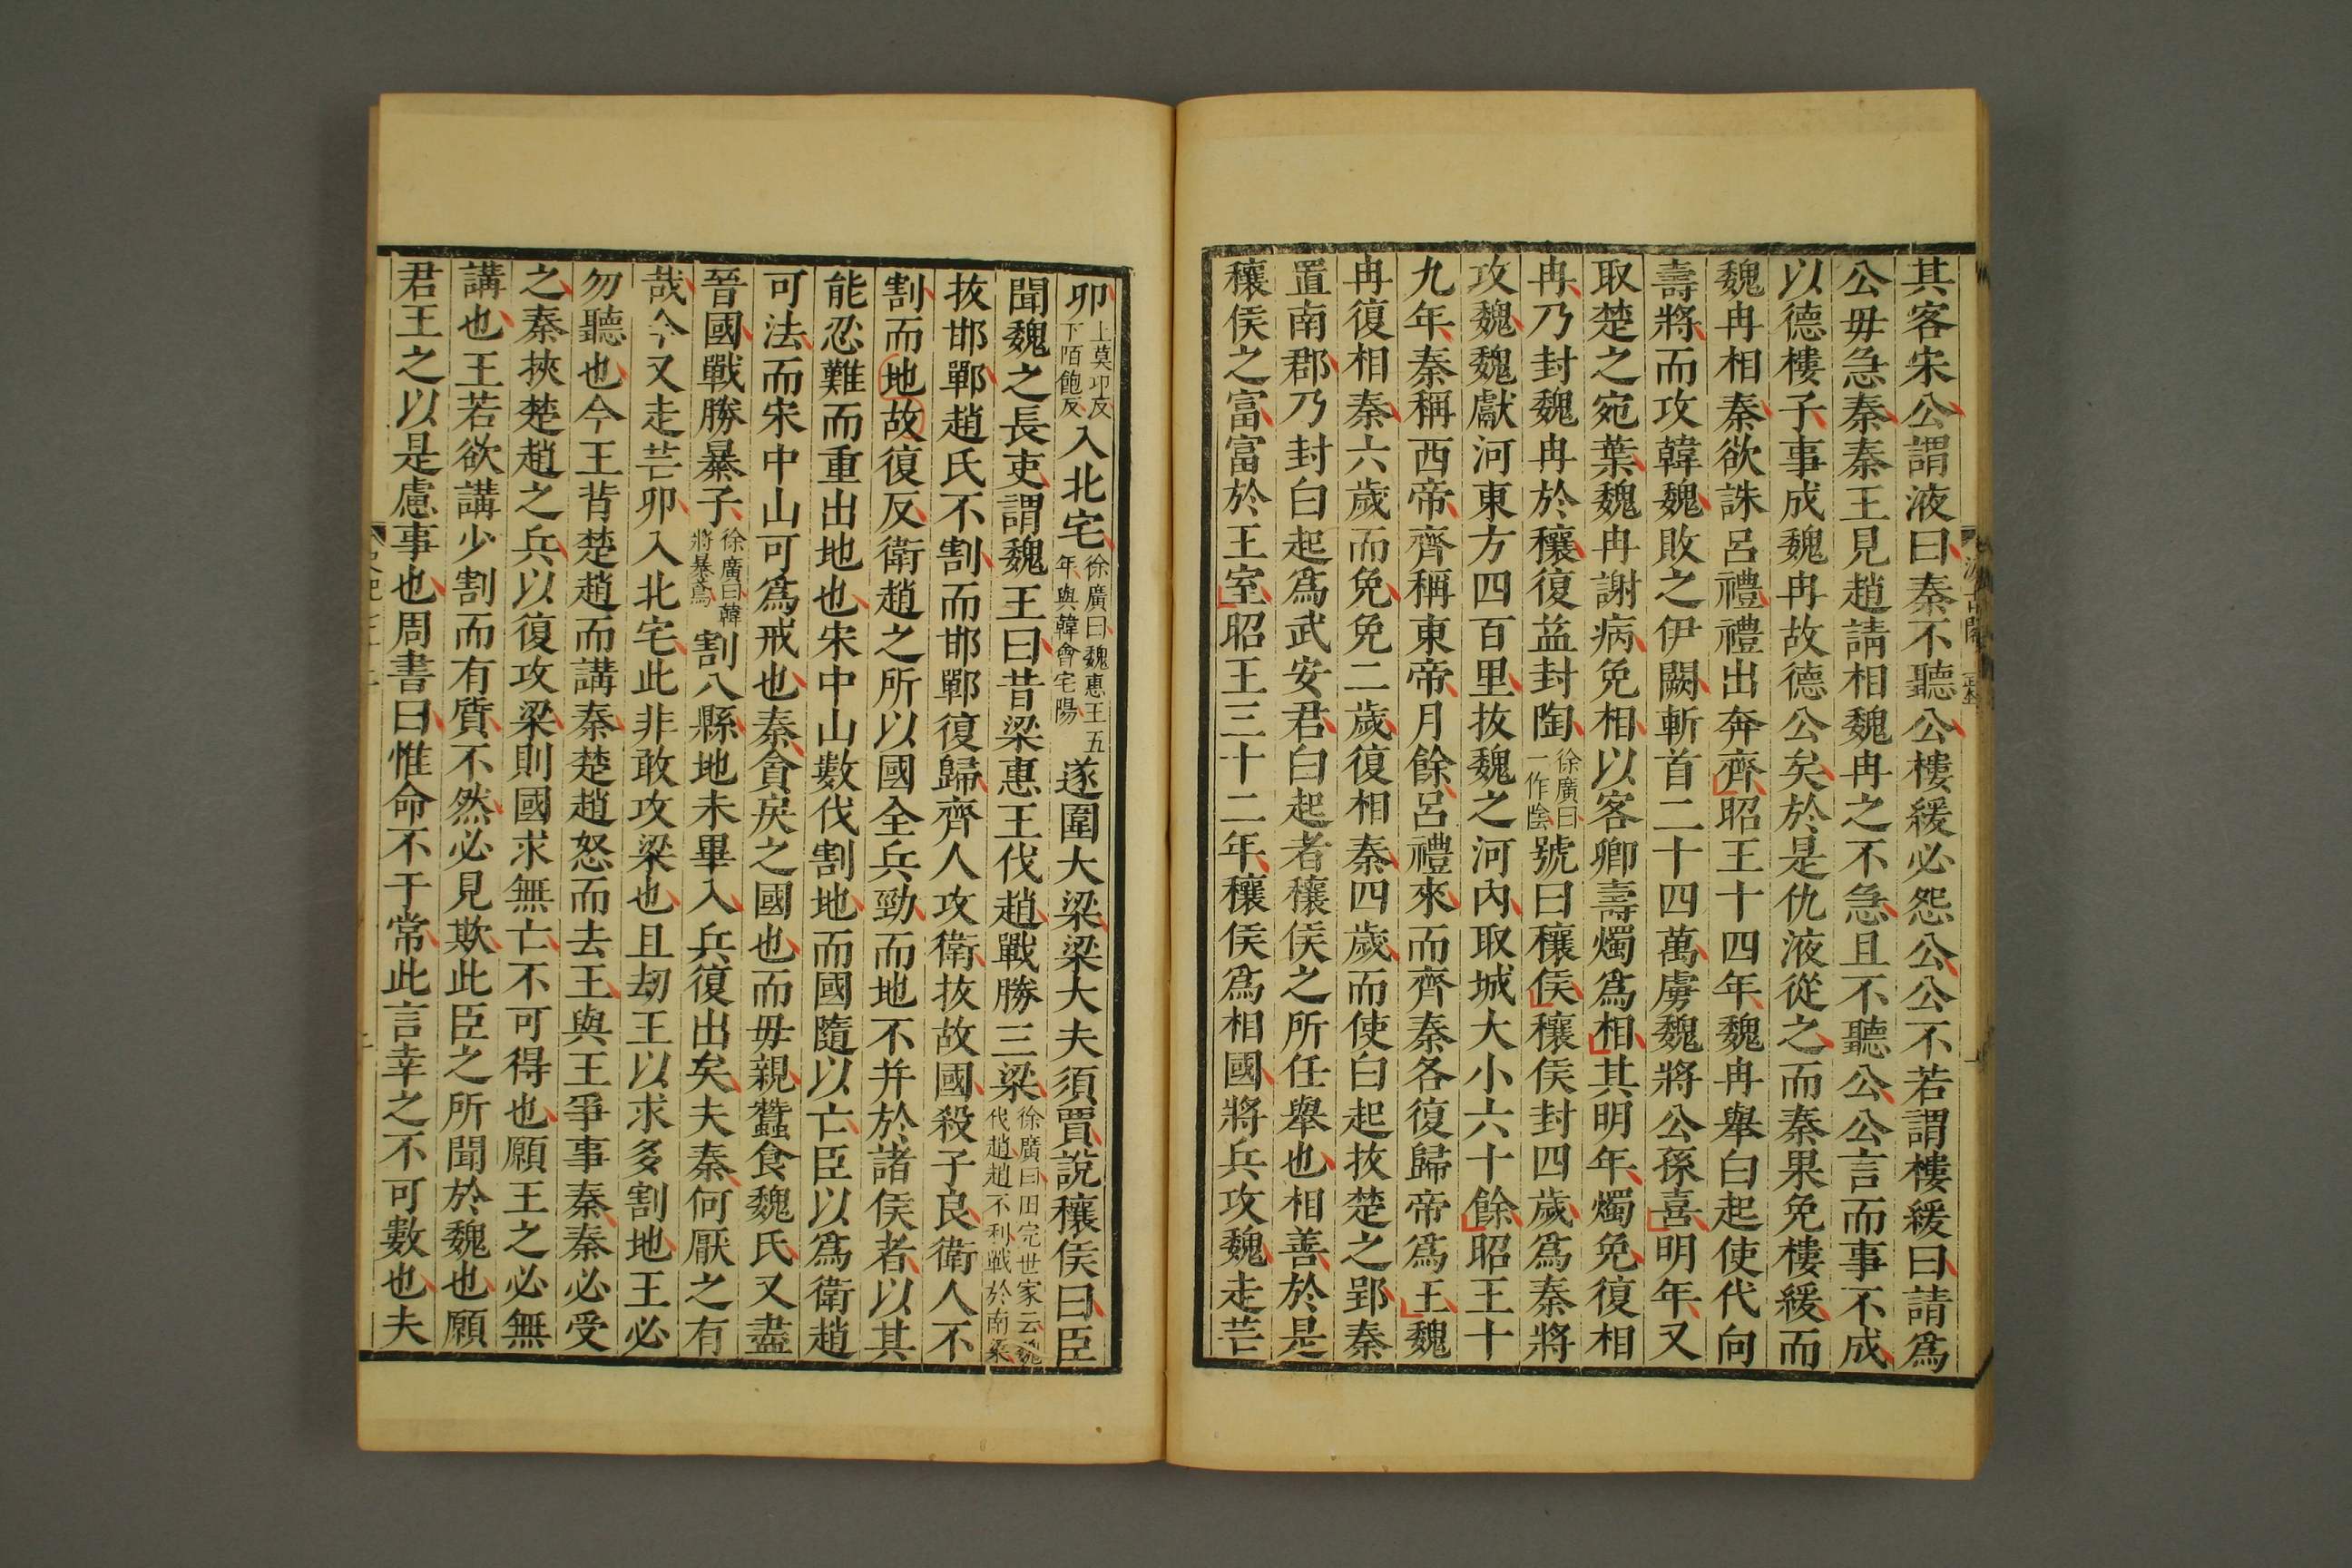 其客宋公謂液曰秦不聽公樓緩必怨公公不若謂樓緩曰請爲
公毋急秦秦王見趙請相魏冉之不急且不聽公公言而事不成
以德樓子事成魏冉故德公矣於是仇液從之而秦果免樓緩而
魏冉相秦欲誅呂禮禮出奔齊昭王十四年魏冉舉白起使代向
壽將而攻韓魏敗之伊闕斬首二十四萬虜魏將公孫喜明年又
取楚之宛葉魏冉謝病免相以客卿壽燭爲相其明年燭免復相
冉乃封魏冉於穰復益封陶徐廣曰一作陰號曰穰侯穰侯封四歲爲秦將
攻魏魏獻河東方四百里拔魏之河內取城大小六十餘昭王十
九年秦稱西帝齊稱東帝月餘呂禮來而齊秦各復歸帝爲王魏
冉復相秦六歲而免免二歲復相秦四歲而使白起拔楚之郢秦
置南郡乃封白起爲武安君白起者穰侯之所任舉也相善於是
穰侯之富富於王室昭王三十二年穰侯爲相國將兵攻魏走芒
卯上莫卬反下陌飽反入北宅徐廣曰魏惠王五年與韓會宅陽遂圍大梁梁大夫須賈說穰侯曰臣
聞魏之長吏謂魏王曰昔梁惠王伐趙戰勝三梁徐廣曰田完世家云魏伐趙趙不利戰於南梁
拔邯鄲趙氏不割而邯鄲復歸齊人攻衛拔故國殺子良衛人不
割而地故復反衛趙之所以國全兵勁而地不并於諸侯者以其
能忍難而重出地也宋中山數伐割地而國隨以亡臣以爲衛趙
可法而宋中山可爲戒也秦貪戾之國也而毋親蠶食魏氏又盡
晉國戰勝暴子徐廣曰韓將暴鳶割八縣地未畢入兵復出矣夫秦何厭之有
哉今又走芒卯入北宅此非敢攻梁也且劫王以求多割地王必
勿聽也今王背楚趙而講秦楚趙怒而去王與王爭事秦秦必受
之秦挾楚趙之兵以復攻梁則國求無亡不可得也願王之必無
講也王若欲講少割而有質不然必見欺此臣之所聞於魏也願
君王之以是慮事也周書曰惟命不于常此言幸之不可數也夫